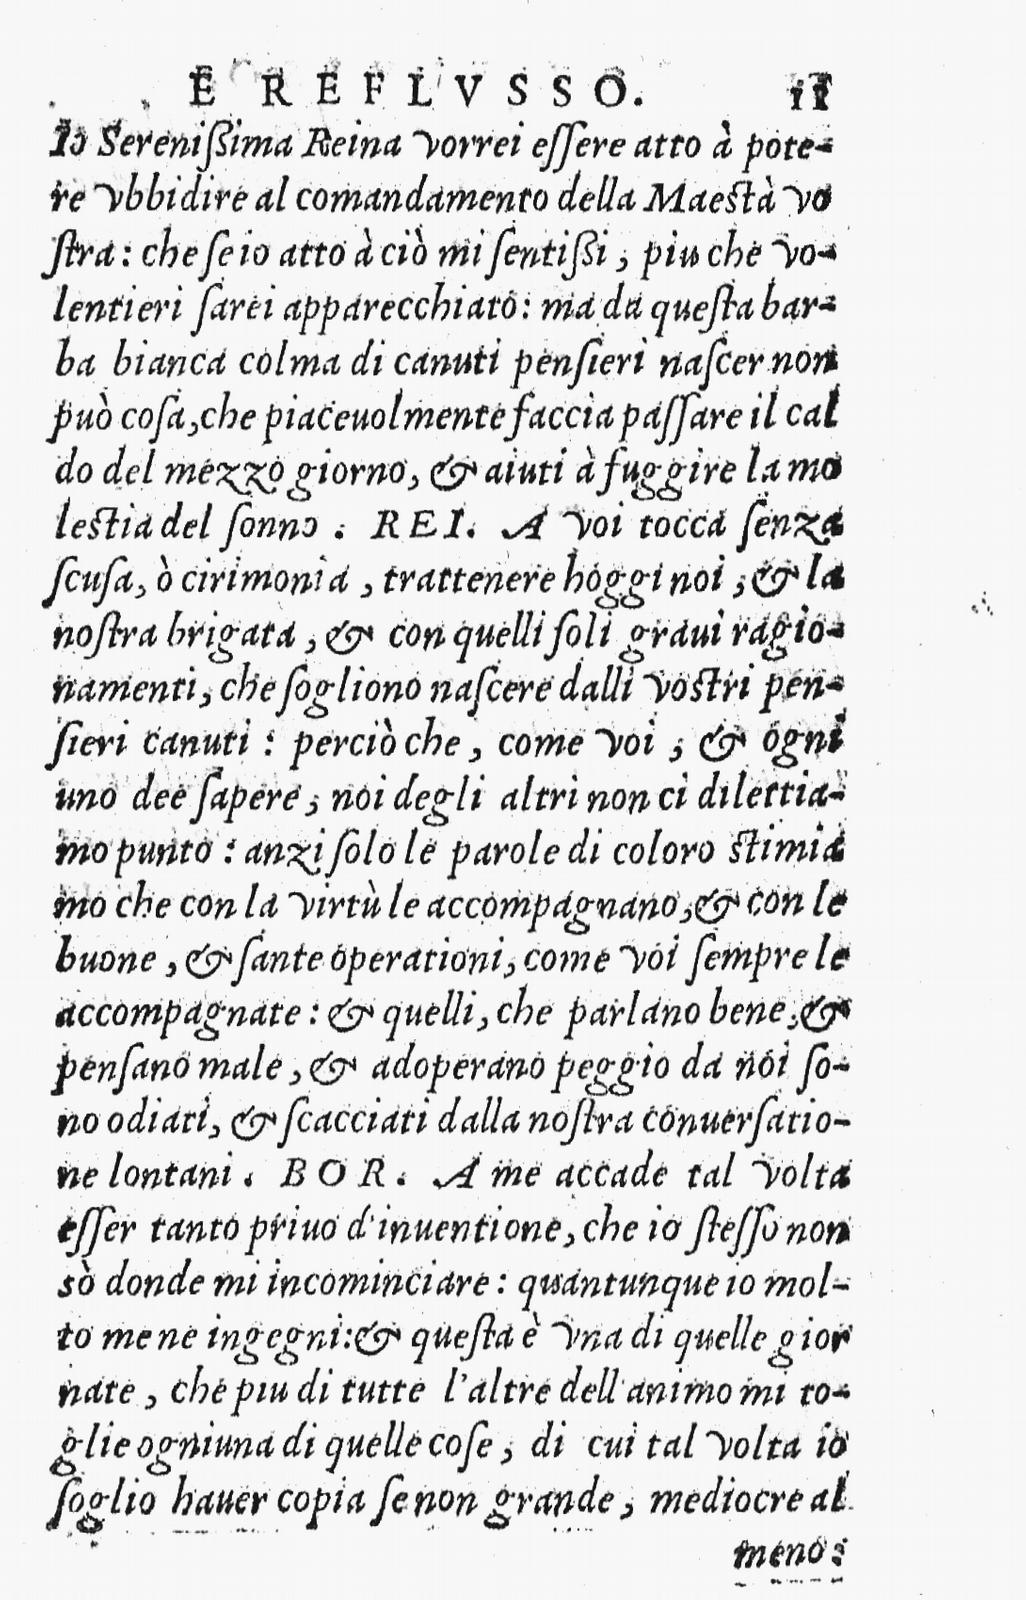 E REFLVSSO. 11
Io Sereniſſima Reina vorrei eſſere atto à pote-
re vbbidire al comandamento della Maeſtà vo
ſtra: che ſe io atto à ciò mi ſentiſſi, piu che vo-
lentieri ſarei apparecchiato: ma da queſta bar-
ba bianca colma di canuti penſieri naſcer non
può coſa, che piaceuolmente faccia paſſare il cal
do del mezzo giorno, & aiuti à fuggire la mo
leſtia del ſonno. REI. A voi tocca ſenza
ſcuſa, ò cirimonia, trattenere hoggi noi, & la
noſtra brigata, & con quelli ſoli graui ragio-
namenti, che ſogliono naſcere dalli voſtri pen-
ſieri canuti: perciò che, come voi, & ogni
uno dee ſapere, noi degli altri non ci dilettia-
mo punto: anzi ſolo le parole di coloro ſtimia
mo che con la virtù le accompagnano, & con le
buone, & ſante operationi, come voi ſempre le
accompagnate: & quelli, che parlano bene, &
penſano male, & adoperano peggio da noi ſo-
no odiati, & ſcacciati dalla noſtra conuerſatio-
ne lontani. BOR. A me accade tal volta
eſſer tanto priuo d'inuentione, che io ſteſſo non
sò donde mi incominciare: quantunque io mol-
to me ne ingegni: & queſta è vna di quelle gior
nate, che piu di tutte l'altre dell'animo mi to-
glie ogniuna di quelle coſe, di cui tal volta io
ſoglio hauer copia ſe non grande, mediocre al
meno: